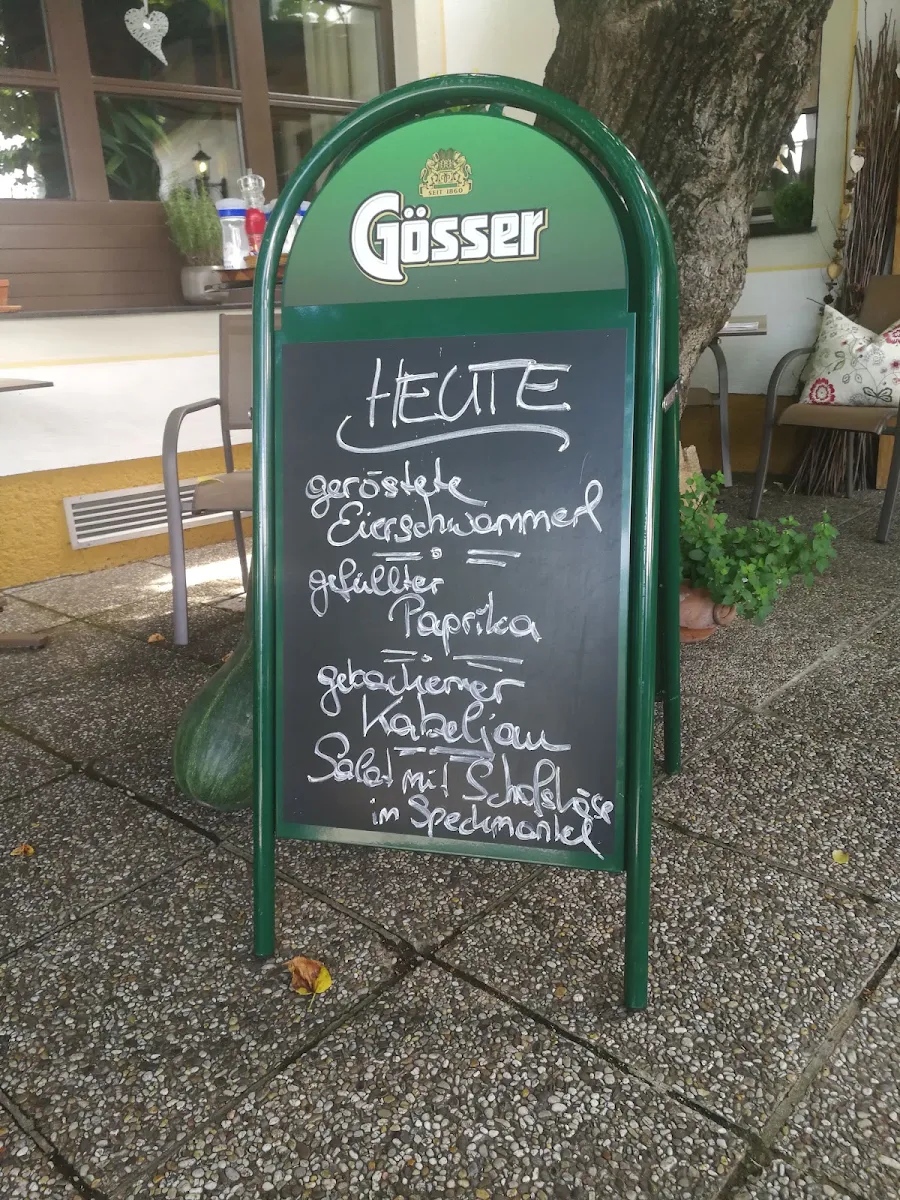 SEIT 1860
Gösser
HEUTE
geröstete
Eierschwammerl
gefüllter
Paprika
gebackener
Kabeljau
Salat mit Schafskäse
im Speckmantel